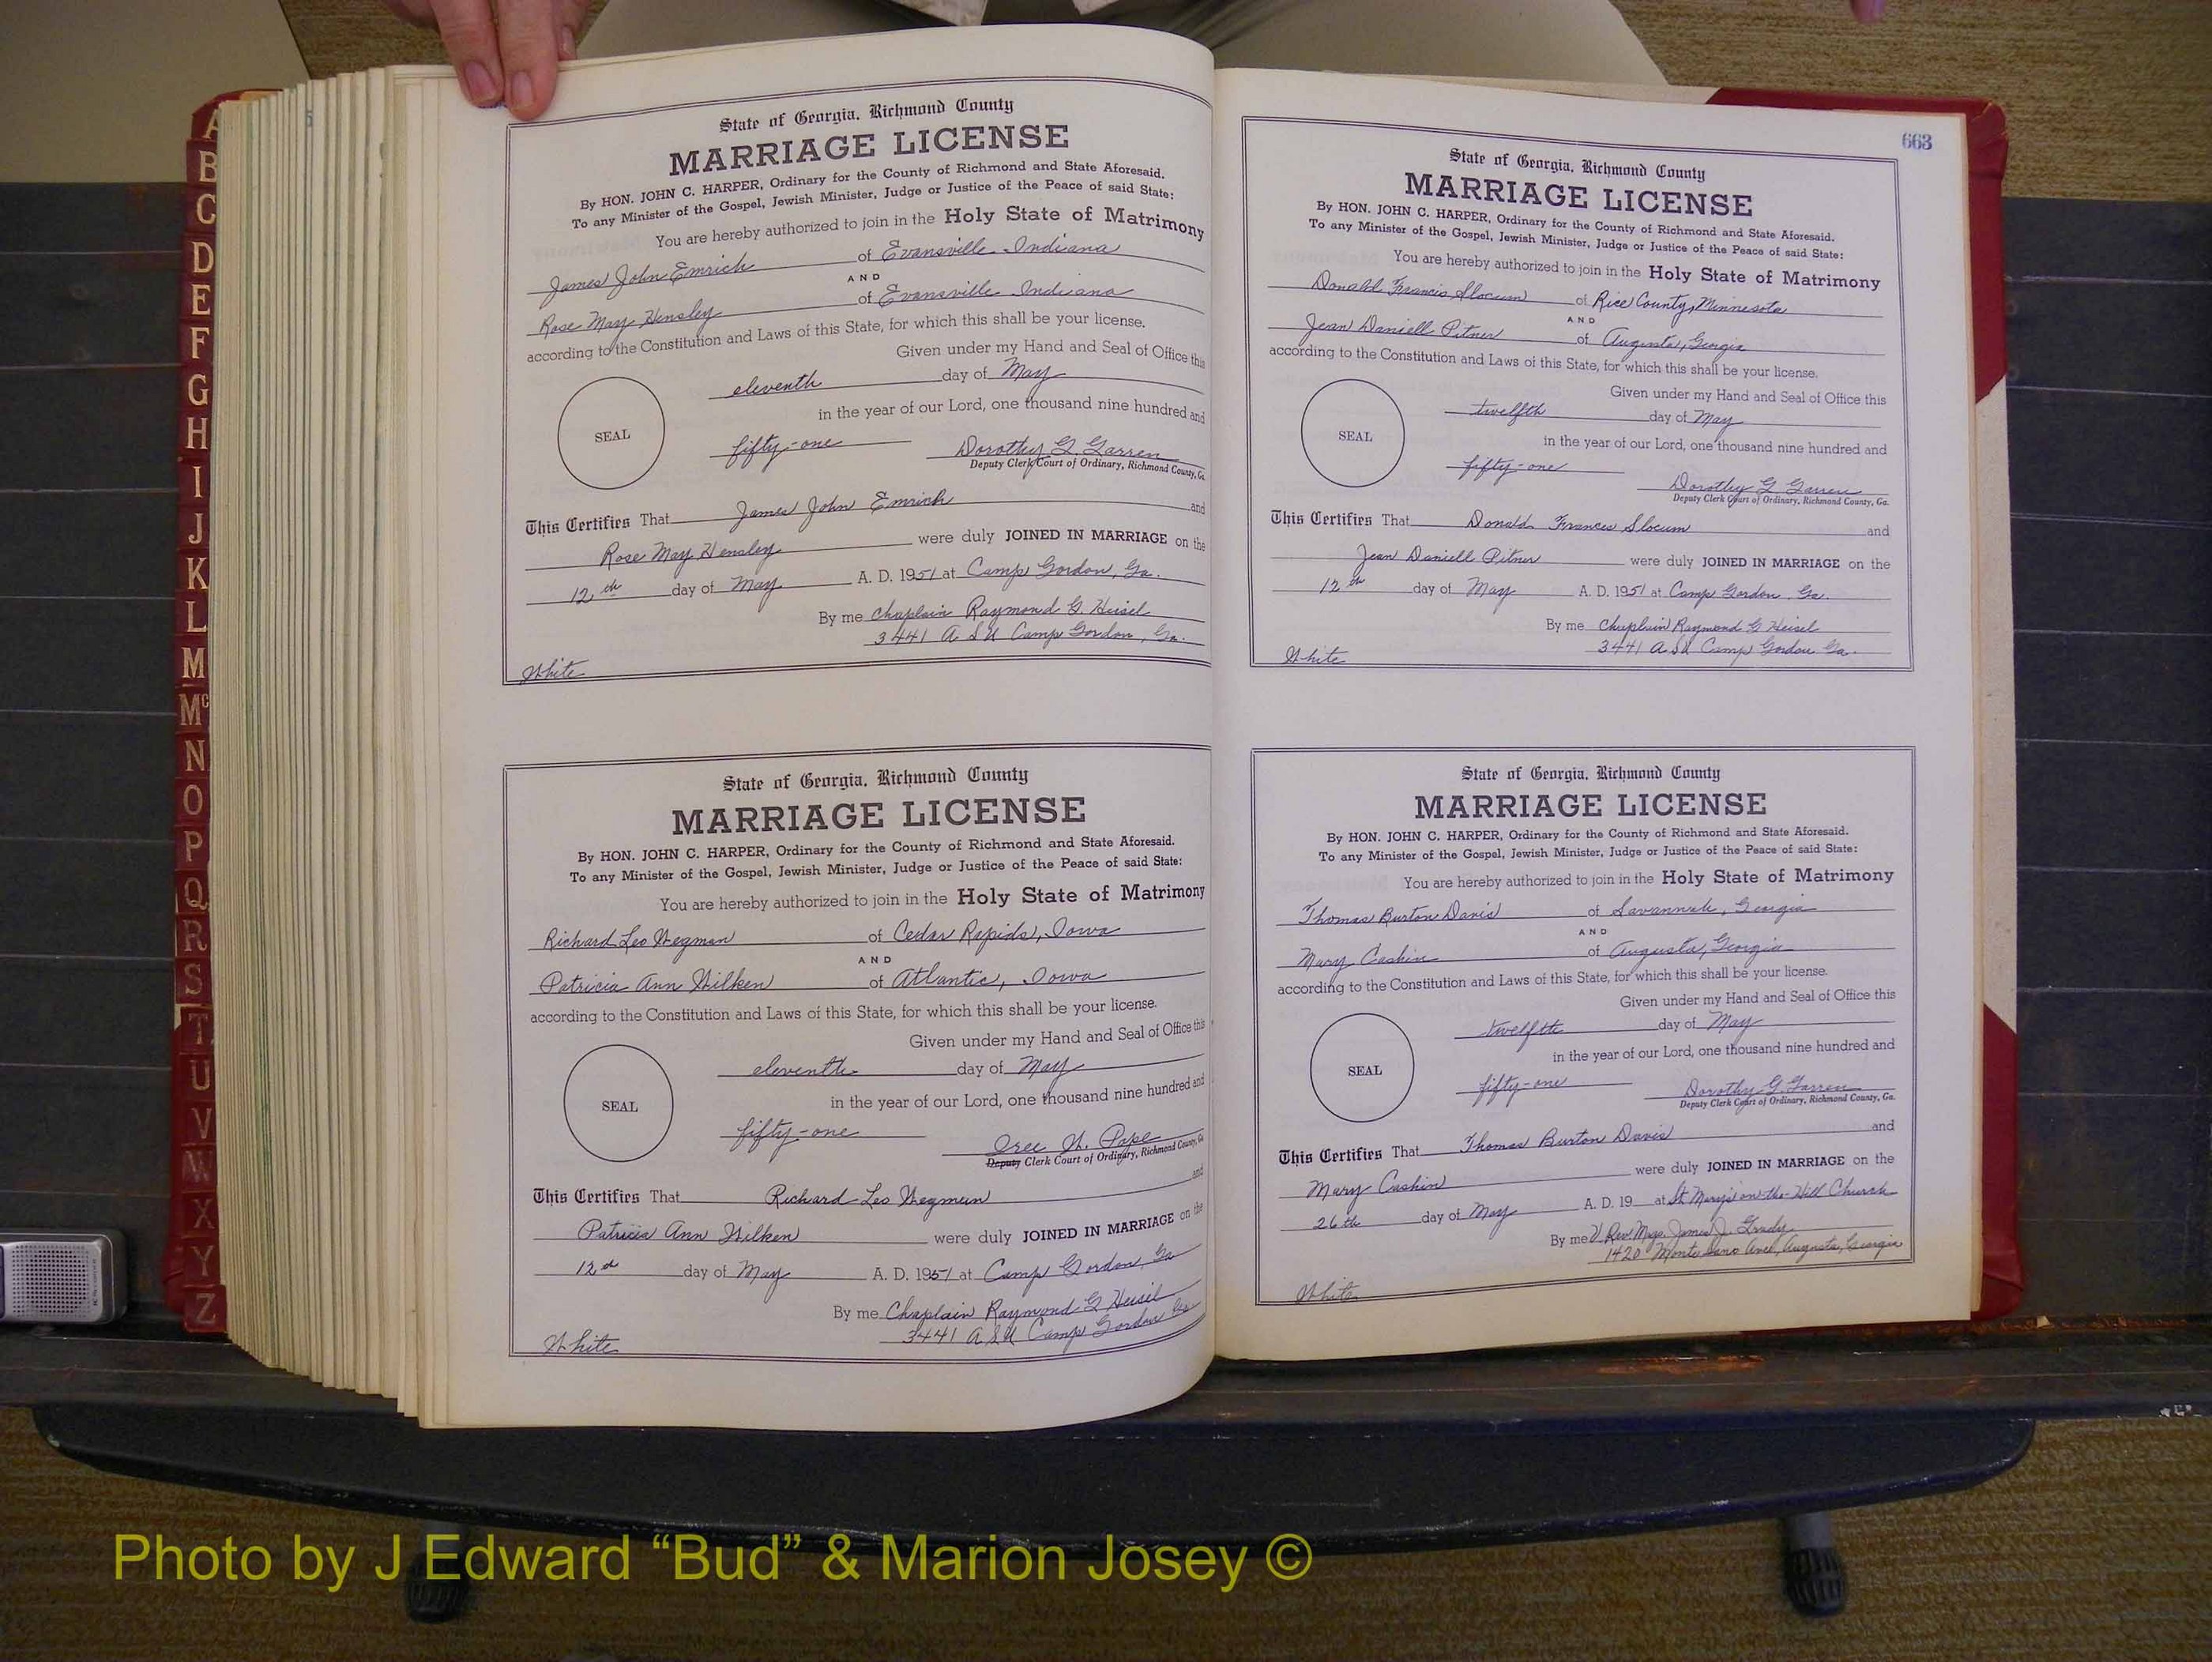 A
B
C
D
E
F
G
H
I
J
K
L
M
Mc
N
O
P
Q
R
S
T
U
V
W
X
Y
Z
State of Georgia, Richmond County
MARRIAGE LICENSE
By HON. JOHN C. HARPER, Ordinary for the County of Richmond and State Aforesaid.
To any Minister of the Gospel, Jewish Minister, Judge or Justice of the Peace of said State:
You are hereby authorized to join in the Holy State of Matrimony
James John Emrich of Evansville Indiana
AND
Rose May Hensley of Evansville Indiana
according to the Constitution and Laws of this State, for which this shall be your license.
Given under my Hand and Seal of Office this
eleventh day of May
in the year of our Lord, one thousand nine hundred and
SEAL
fifty-one Dorothy G. Garren
Deputy Clerk Court of Ordinary, Richmond County, Ga.
This Certifies That James John Emrich and
Rose May Hensley were duly JOINED IN MARRIAGE on the
12th day of May A. D. 1951 at Camp Gordon, Ga.
By me Chaplain Raymond G. Heisel
3441 A S U Camp Gordon, Ga.
White
State of Georgia, Richmond County
MARRIAGE LICENSE
By HON. JOHN C. HARPER, Ordinary for the County of Richmond and State Aforesaid.
To any Minister of the Gospel, Jewish Minister, Judge or Justice of the Peace of said State:
You are hereby authorized to join in the Holy State of Matrimony
Richard Leo Wegman of Cedar Rapids, Iowa
AND
Patricia Ann Wilken of Atlantic, Iowa
according to the Constitution and Laws of this State, for which this shall be your license.
Given under my Hand and Seal of Office this
eleventh day of May
in the year of our Lord, one thousand nine hundred and
SEAL
fifty-one Pope
Deputy Clerk Court of Ordinary, Richmond County, Ga
This Certifies That Richard Leo Wegman and
Patricia Ann Wilken were duly JOINED IN MARRIAGE on the
12th day of May A. D. 1951 at Camp Gordon, Ga
By me Chaplain Raymond G Heisel
3441 A S U Camp Gordon Ga
White
663
State of Georgia, Richmond County
MARRIAGE LICENSE
By HON. JOHN C. HARPER, Ordinary for the County of Richmond and State Aforesaid.
To any Minister of the Gospel, Jewish Minister, Judge or Justice of the Peace of said State:
You are hereby authorized to join in the Holy State of Matrimony
Donald Francis Slocum of Rice County, Minnesota
AND
Jean Daniell Pitner of Augusta, Georgia
according to the Constitution and Laws of this State, for which this shall be your license.
Given under my Hand and Seal of Office this
twelfth day of May
in the year of our Lord, one thousand nine hundred and
SEAL
fifty-one Dorothy G Garren
Deputy Clerk Court of Ordinary, Richmond County, Ga.
This Certifies That Donald Frances Slocum and
Jean Daniell Pitner were duly JOINED IN MARRIAGE on the
12th day of May A. D. 1951 at Camp Gordon, Ga.
By me Chaplain Raymond G Heisel
3441 A S U Camp Gordon Ga.
White
State of Georgia, Richmond County
MARRIAGE LICENSE
By HON. JOHN C. HARPER, Ordinary for the County of Richmond and State Aforesaid.
To any Minister of the Gospel, Jewish Minister, Judge or Justice of the Peace of said State:
You are hereby authorized to join in the Holy State of Matrimony
Thomas Burton Davis of Savannah, Georgia
AND
Mary Cashin of Augusta, Georgia
according to the Constitution and Laws of this State, for which this shall be your license.
Given under my Hand and Seal of Office this
twelfth day of May
in the year of our Lord, one thousand nine hundred and
SEAL
fifty-one Dorothy G. Garren
Deputy Clerk Court of Ordinary, Richmond County, Ga.
This Certifies That Thomas Burton Davis and
Mary Cashin were duly JOINED IN MARRIAGE on the
26th day of May A. D. 19 at St Mary's on-the-Hill Church
By me V. Rev. Msgr. James J. Grady
1420 Monte Sano Ave, Augusta, Georgia
White
Photo by J Edward “Bud” & Marion Josey ©